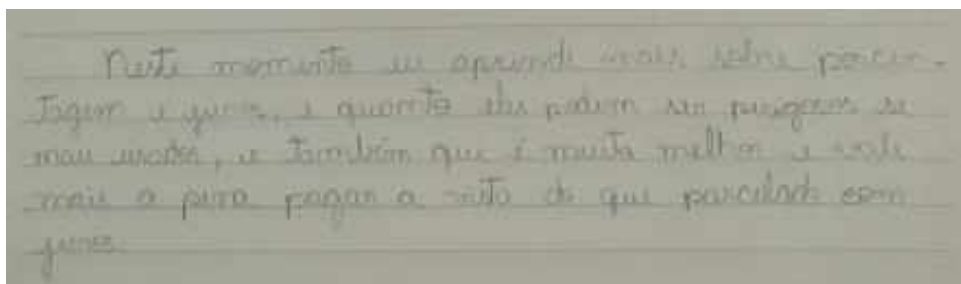 Neste momento eu aprendi mais sobre porcen-
tagem e juros, e quanto eles podem ser perigosos se
mau usados, e também que é muito melhor e vale
mais a pena pagar a vista do que parcelado com
juros